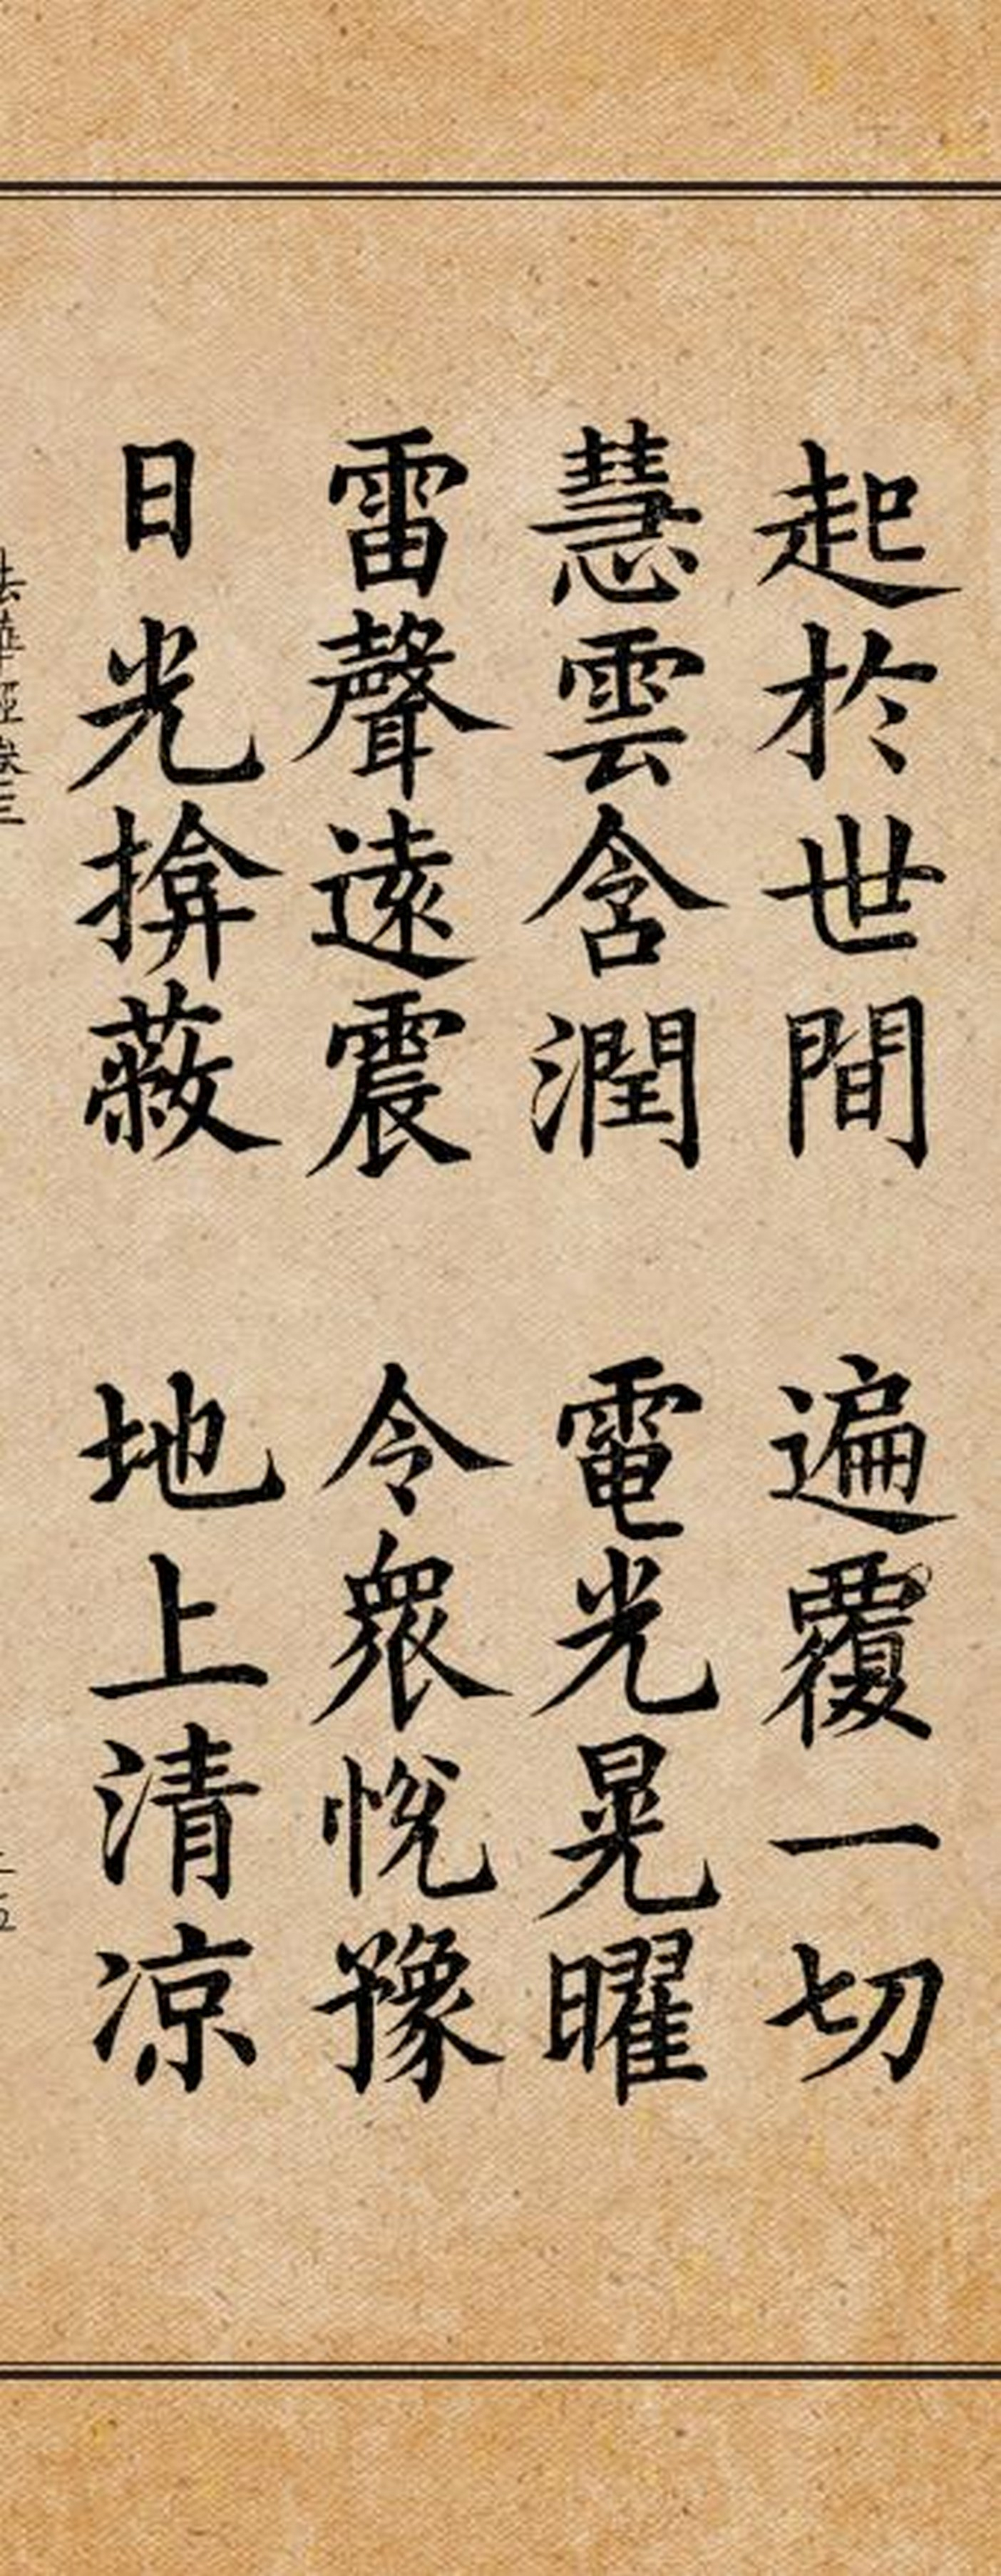 起於世間 遍覆一切
慧雲含潤 電光晃曜
雷聲遠震 令衆悅豫
日光揜蔽 地上清涼
法華經卷三